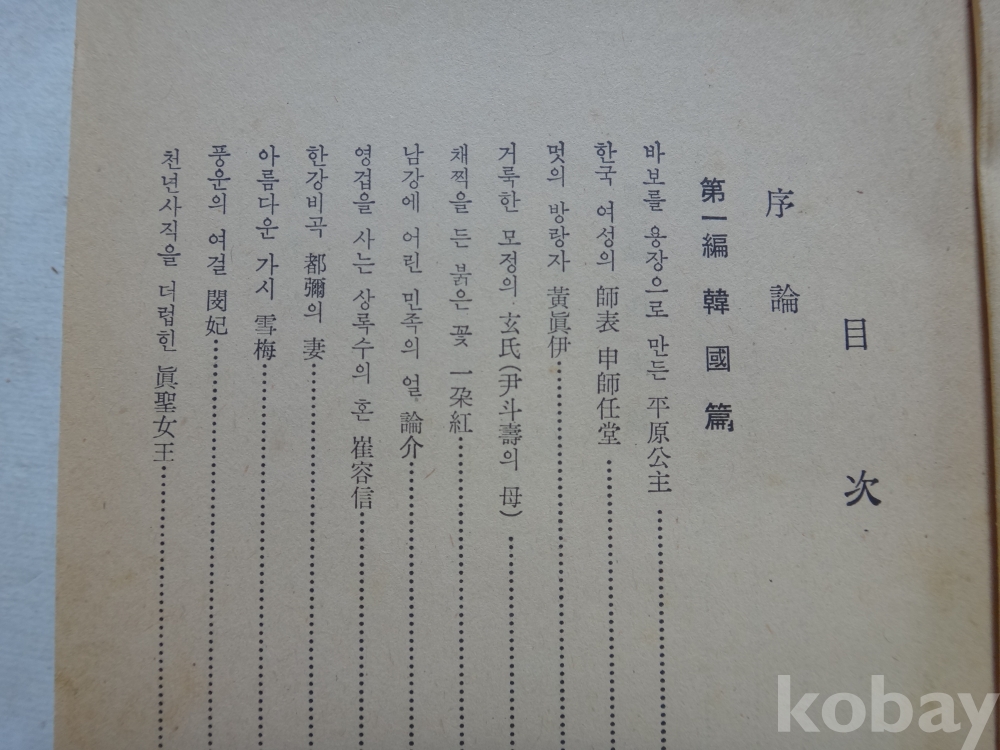 目次
序論
第一編 韓國篇
바보를 용장으로 만든 平原公主
한국 여성의 師表 申師任堂
멋의 방랑자 黃眞伊
거룩한 모정의 玄氏(尹斗壽의 母)
채찍을 든 붉은 꽃 一朶紅
남강에 어린 민족의 얼 論介
영겁을 사는 상록수의 혼 崔容信
한강비곡 都彌의 妻
아름다운 가시 雪梅
풍운의 여걸 閔妃
천년사직을 더럽힌 眞聖女王
kobay